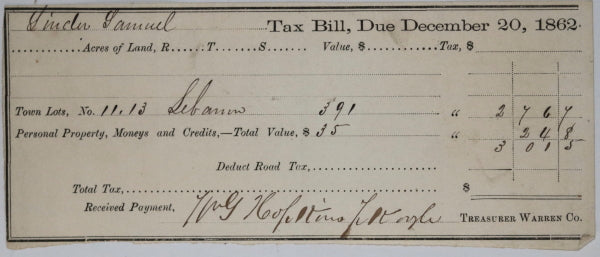 Linder Samuel Tax Bill, Due December 20, 1862.
Acres of Land, R. T. S. Value, $ Tax, $
Town Lots, No. 11.13 Lebanon 391 " 2 7 6 7
Personal Property, Moneys and Credits,—Total Value, $ 35 " 2 4 8
3 0 1 5
Deduct Road Tax,
Total Tax, $
Received Payment, Wm G Hopkins p K TREASURER WARREN CO.